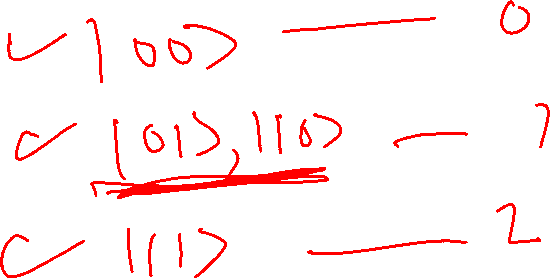 ✓ |00⟩ — 0
✓ |01⟩, |10⟩ — 1
✓ |11⟩ — 2